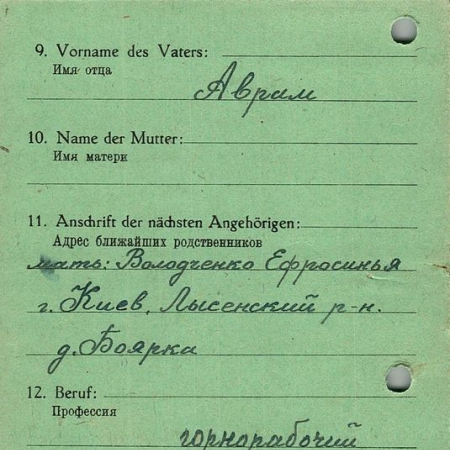 9. Vorname des Vaters:
Имя отца
Аврам
10. Name der Mutter:
Имя матери
11. Anschrift der nächsten Angehörigen:
Адрес ближайших родственников
мать: Володченко Ефросинья
г. Киев, Лысенский р-н.
д. Боярка
12. Beruf:
Профессия
горнорабочий